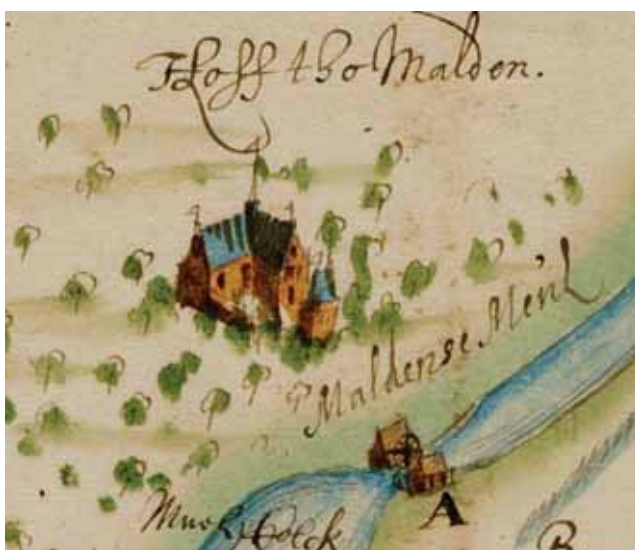 THoff tho Malden.
Maldense Meül
A
Muol Kolck
B